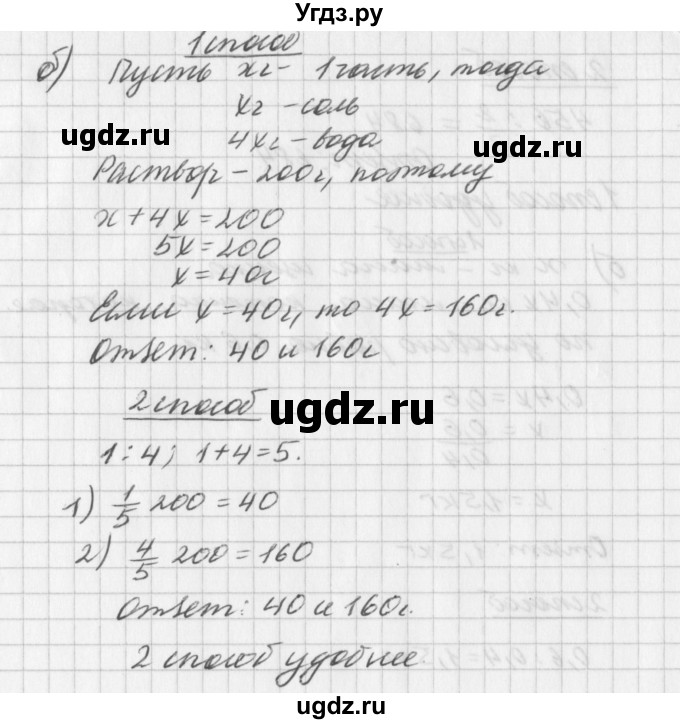 Угдз.ру
1 способ
б) Пусть xг - 1 часть, тогда
xг - соль
ugdz.ru
ugdz.ru
4xг - вода
Раствор - 200г, поэтому
x + 4x = 200
5x = 200
x = 40г
Если x = 40г, то 4x = 160г.
Ответ: 40 и 160г
2 способ
ugdz.ru
1 : 4; 1 + 4 = 5.
1) 1/5 200 = 40
2) 4/5 200 = 160
ugdz.ru
ugdz.ru
Ответ: 40 и 160г.
2 способ удобнее
ugdz.ru